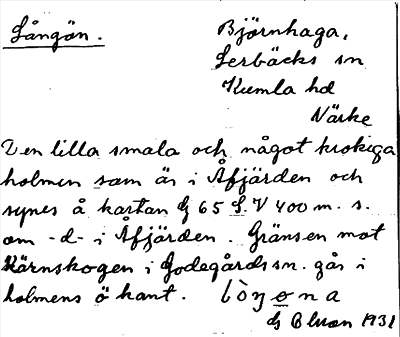 Långön.
Björnhaga,
Lerbäcks sn
Kumla hd
Närke
Den lilla smala och något krokiga
holmen som är i Åfjärden och
synes å kartan G 65 S. V 400 m. s.
om -d- i Åfjärden. Gränsen mot
Kärnskogen i Godegårds sn. går i
holmens ö kant.
1931